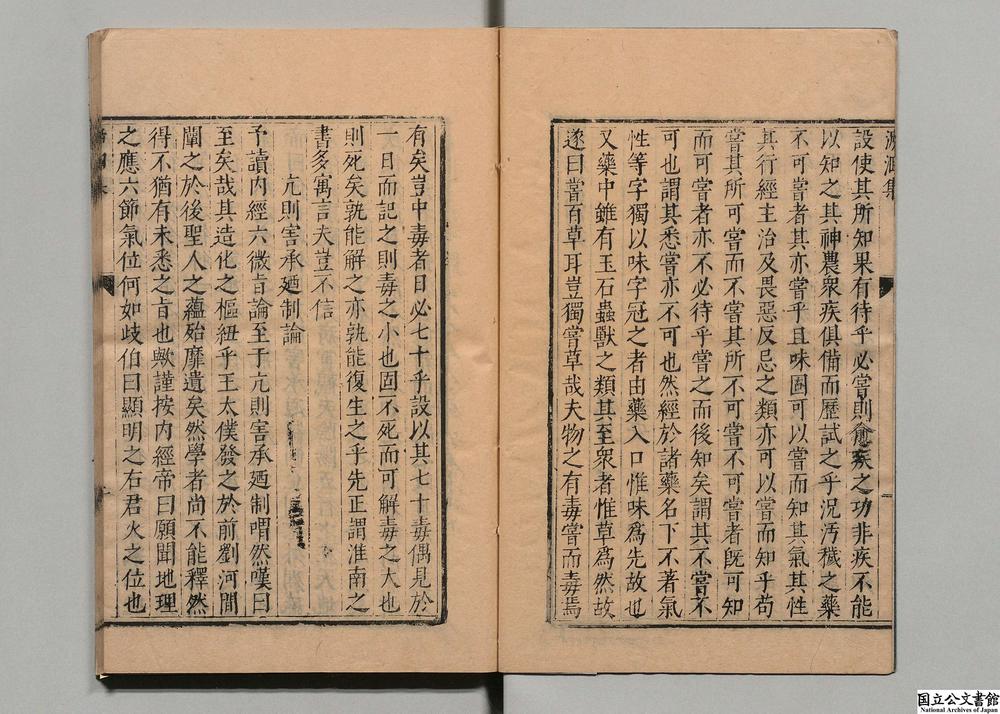 設使其所知果有待乎必嘗則愈疾之功非疾不能
以知之其神農衆疾俱備而歷試之乎況汚穢之藥
不可嘗者其亦嘗乎且味固可以嘗而知其氣其性
其行經主治及畏惡反忌之類亦可以嘗而知乎苟
嘗其所可嘗而不嘗其所不可嘗不可嘗者旣可知
而可嘗者亦不必待乎嘗之而後知矣謂其不嘗不
可也謂其悉嘗亦不可也然經於諸藥名下不著氣
性等字獨以味字冠之者由藥入口惟味爲先故也
又藥中雖有玉石蟲獸之類其至衆者惟草爲然故
遂曰嘗百草耳豈獨嘗草哉夫物之有毒嘗而毒焉
有矣豈中毒者日必七十乎設以其七十毒偶見於
一日而記之則毒之小也固不死而可解毒之大也
則死矣孰能解之亦孰能復生之乎先正謂淮南之
書多寓言夫豈不信
亢則害承廼制論
予讀内經六微旨論至于亢則害承廼制喟然嘆曰
至矣哉其造化之樞紐乎王太僕發之於前劉河間
闡之於後聖人之蘊殆靡遺矣然學者尚不能釋然
得不猶有未悉之旨也歟謹按内經帝曰願聞地理
之應六節氣位何如歧伯曰顯明之右君火之位也
国立公文書館
National Archives of Japan